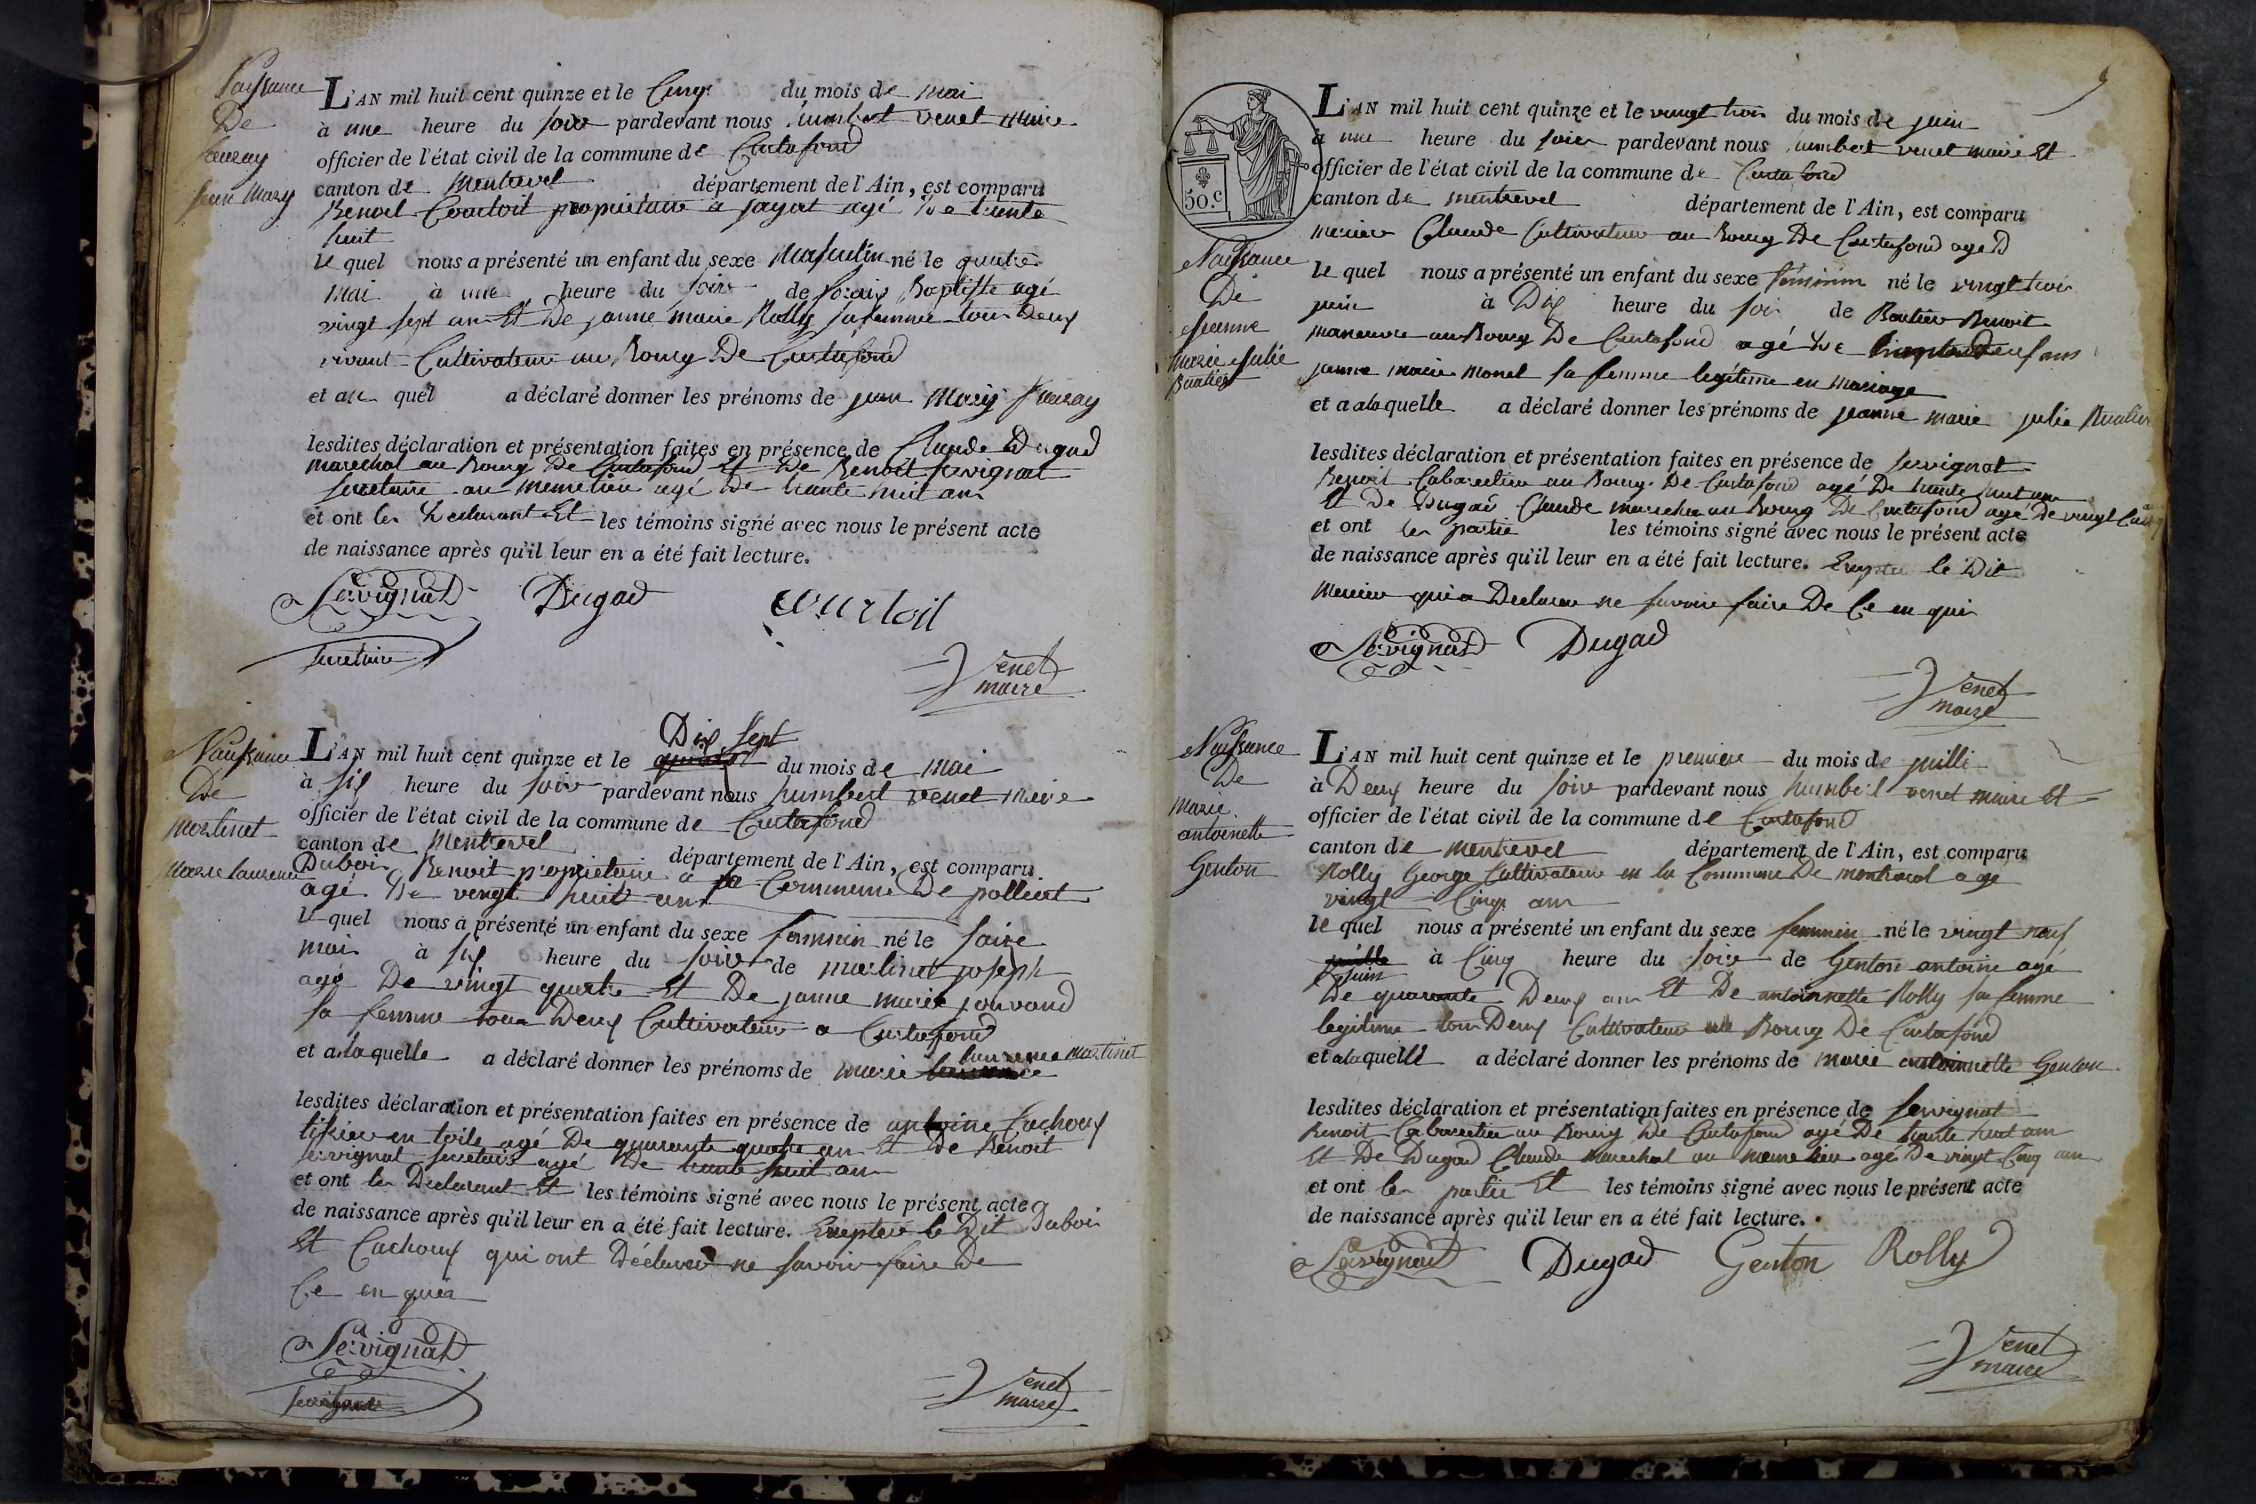 Naissance
De
Jean Mary
L'AN mil huit cent quinze et le Cinq du mois de mai
à une heure du soir pardevant nous humbert venet maire
officier de l'état civil de la commune de Curtafond
canton de Montrevel département de l'Ain, est comparu
Benoit Courtoit propriétaire a jayat agé De trente
huit
le quel nous a présenté un enfant du sexe Masculin né le quatre
mai à une heure du soir de Baptiste agé
vingt sept an Et De janne marie Rolly sa femme tous Deux
vivant Cultivateur au Bourg De Curtafond
et au quel a déclaré donner les prénoms de jean Mary
lesdites déclaration et présentation faites en présence de Claude Dugad
marechal au Bourg De Curtafond Et De Benoit servignat
secretaire au meme lieu agé De trante huit an
et ont les Declarant Et les témoins signé avec nous le présent acte
de naissance après qu'il leur en a été fait lecture.
Servignat Dugad courtoit
secretaire
Venet
maire
Naissance
De
Martinet
Marie Laurence
L'AN mil huit cent quinze et le Dix sept du mois de mai
à six heure du soir pardevant nous humbert venet maire
officier de l'état civil de la commune de Curtafond
canton de Montrevel département de l'Ain, est comparu
Dubois Benoit propriétaire a la Commune De polliat
agé De vengt huit an
le quel nous a présenté un enfant du sexe feminin né le saize
mai à six heure du soir de martinet joseph
agé De vingt quatre Et De janne marie jouvand
sa femme tous Deux Cultivateur a Curtafond
et a la quelle a déclaré donner les prénoms de marie laurence martinet
lesdites déclaration et présentation faites en présence de antoine Cachoux
tissieu en toile agé De quarante quatre an Et De Benoit
servignat secretaire agé De trante huit an
et ont les Declarant Et les témoins signé avec nous le présent acte
de naissance après qu'il leur en a été fait lecture. Exepter le Dit Dubois
Et Cachoux qui ont Déclarer ne savoir faire De
Ce en quis
Servignat
Venet
maire
9
50.c
Naissance
De
Jeanne
Marie Julie
Rualier
L'AN mil huit cent quinze et le vingt trois du mois de juin
à une heure du soir pardevant nous humbert venet maire Et
officier de l'état civil de la commune de Curtafond
canton de Montrevel département de l'Ain, est comparu
mercier Claude Cultivateur au Bourg De Curtafond aged
le quel nous a présenté un enfant du sexe féminin né le vingt trois
juin à Dix heure du soir de Benoit
maneuvre au Bourg De Curtafond agé De ans
janne marie monet sa femme legitime en mariage
et a la quelle a déclaré donner les prénoms de jeanne marie julie Rualier
lesdites déclaration et présentation faites en présence de servignat
Benoit Cabaretier au Bourg De Curtafond agé De trante huit an
Et De Dugad Claude marechal au Bourg De Curtafond agé De vingt Cinq
et ont les partie les témoins signé avec nous le présent acte
de naissance après qu'il leur en a été fait lecture. Exepter le Dit
Mercier qui a Declarer ne savoir faire De Ce en quis
Servignat Dugad
Venet
maire
Naissance
De
Marie
antoinette
Genton
L'AN mil huit cent quinze et le premier du mois de juilli
à Deux heure du soir pardevant nous humbert venet maire Et
officier de l'état civil de la commune de Curtafond
canton de Montrevel département de l'Ain, est comparu
Rolly George Cultivateur en la Commune De montracol age
vingt Cinq an
le quel nous a présenté un enfant du sexe feminin né le vingt neuf
juin à Cinq heure du soir de Genton antoine agé
De quarante Deux an Et De antoinnette Rolly sa femme
legitime tous Deux Cultivateur au Bourg De Curtafond
et a la quelle a déclaré donner les prénoms de marie antoinnette Genton
lesdites déclaration et présentation faites en présence de servignat
Benoit Cabaretier au Bourg De Curtafond agé De trante huit an
Et De Dugad Claude Marechal au meme lieu agé De vingt Cinq an
et ont les partie Et les témoins signé avec nous le présent acte
de naissance après qu'il leur en a été fait lecture.
Servignat Dugad Genton Rolly
Venet
maire